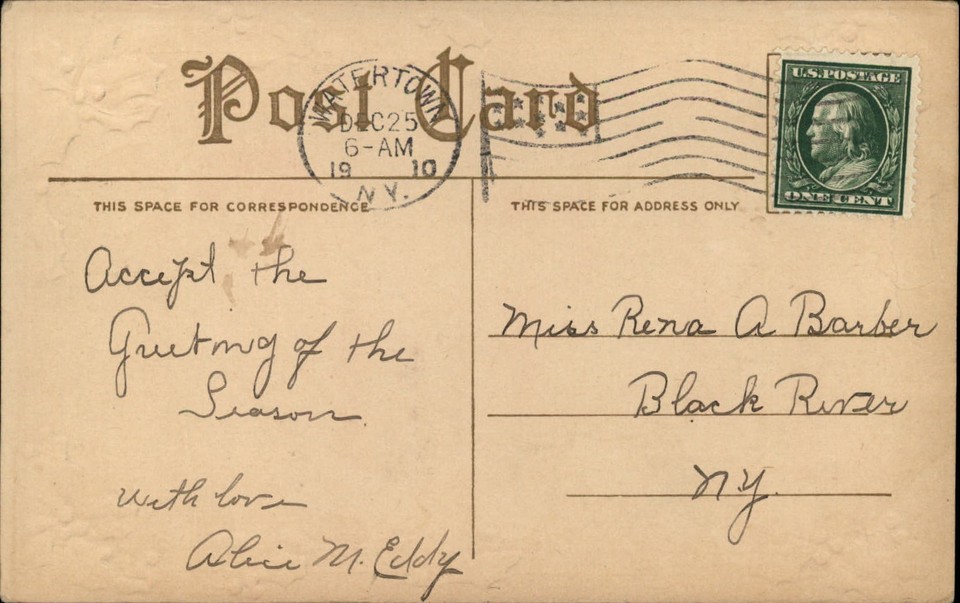 Post Card
WATERTOWN
DEC 25
6-AM
19 10
N.Y.
U.S. POSTAGE
ONE CENT
THIS SPACE FOR CORRESPONDENCE
THIS SPACE FOR ADDRESS ONLY
Accept the
Greeting of the
Season
With love
Alice M. Eddy
Miss Rena A Barber
Black River
NY.